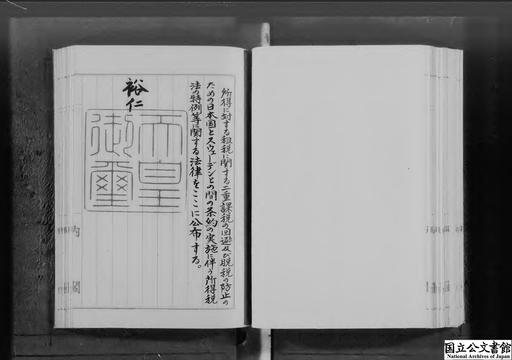 所得に対する租税に関する二重課税の回避及び脱税の防止の
ための日本国とスウェーデンとの間の条約の実施に伴う所得税
法の特例等に関する法律をここに公布する。
裕仁
天皇
御璽
内閣
国立公文書館
National Archives of Japan